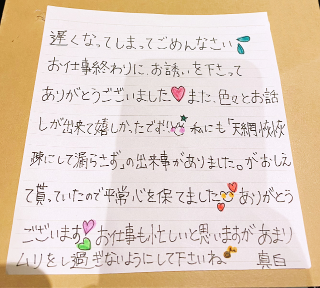 遅くなってしまってごめんなさい
お仕事終わりに、お誘いを下さって
ありがとうございました また、色々とお話
しが出来て嬉しかったです!! 私にも「天網恢恢
疎にして漏らさず」の出来事がありました。がおしえ
て貰っていたので平常心を保てました ありがとう
ございます お仕事も忙しいと思いますがあまり
ムリをし過ぎないようにして下さいね 真白